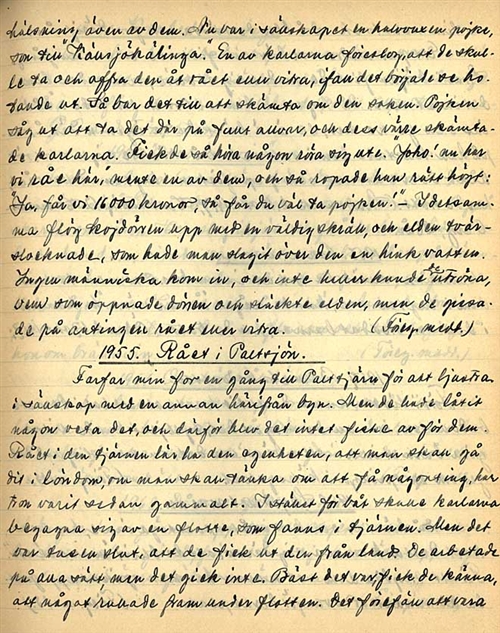 hälsning även av dem. Nu var i sällskapet en halvvuxen pojke,
son till Käusjökälinga. En av karlarna föreslog, att de skul-
le ta och offra den åt rået eller vitra, ifall det började se ho-
tande ut. Så bar det till att skämta om den saken. Pojken
såg ut att ta det där på fullt allvar, och dess värre skämta-
de karlarna. Fick de så höra någon röra sig ute. "Joho! nu har
vi råe här," mente en av dem, och så ropade han rätt högt:
"Ja, får vi 16000 kronor, så får du väl ta pojken!" – I detsam-
ma flög kojdörren upp med en väldig skräll, och elden tvär-
slocknade, som hade man slagit över den en hink vatten.
Ingen människa kom in, och inte heller kunde de utröna,
vem som öppnade dören och släckte elden, men de gissa-
de på antingen rået eller vitra. (Föreg. medd.)
1955. Rået i Paltsjön.
Farfar min for en gång till Paltstjärn för att ljustra
i sällskap med en annan härifrån byn. Men de hade låtit
någon veta det, och därför blev det intet fiske av för dem.
Rået i den tjärnen lär ha den egenheten, att man skall gå
dit i löndom om man skall tänka om att få någonting, har
tron varit sedan gammalt. I stället för båt skulle karlarna
begagna sig av en flotte, som fanns i tjärnen. Men det
var tusen slut, att de fick ut den från land. De arbetade
på alla sätt, men det gick inte. Bäst det var, fick de känna,
att något rullade fram under flotten. Det föreföll att vara